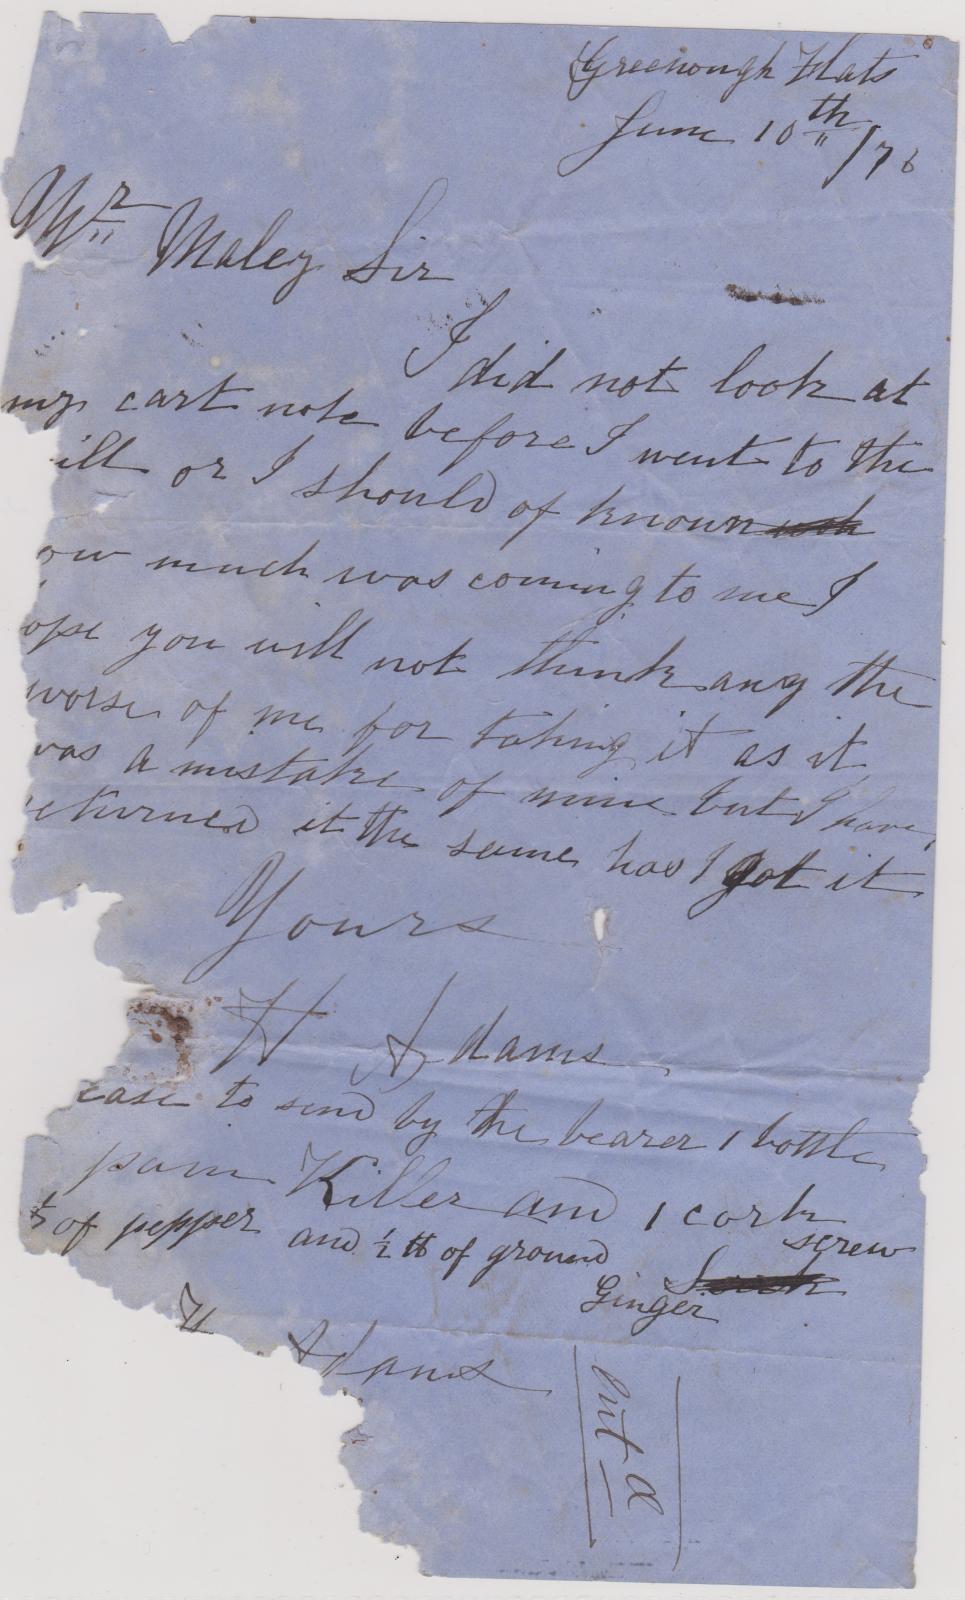 Greenough Flats
June 10th /76
Mr Maley Sir
I did not look at
my cart note before I went to the
ill or I should of known
ow much was coming to me I
ope you will not think any the
worse of me for taking it as it
was a mistake of mine but I have
eturned it the same has I got it
Yours
H Adams
ease to send by the bearer 1 bottle
pain Killer and 1 cork
screw
of pepper and ½ lb of ground
Ginger
H Adams
Ent d